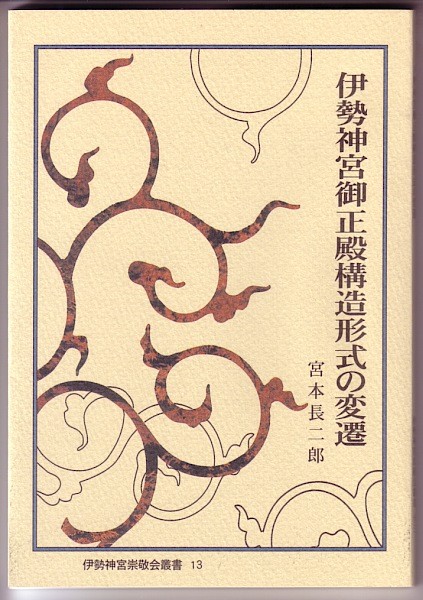 伊勢神宮御正殿構造形式の変遷
宮本長二郎
伊勢神宮崇敬会叢書 13